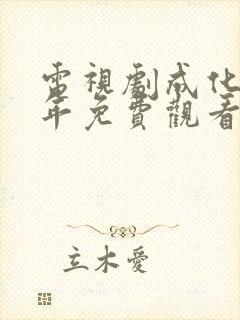 電視劇成化
年免費觀看
立木愛